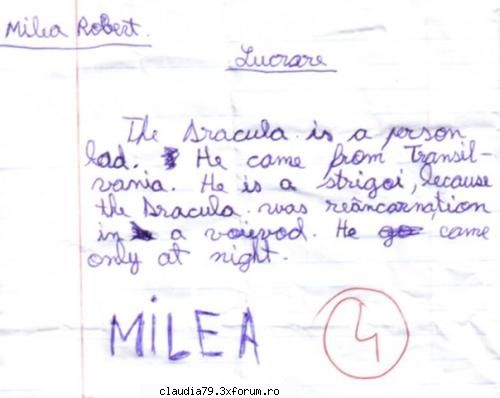 Milea Robert.
Lucrare
The Dracula is a person
bad. He came from Transil-
vania. He is a strigoi, because
the Dracula was reâncarnation
in a voievod. He go came
only at night.
MILEA
4
claudia79.3xforum.ro